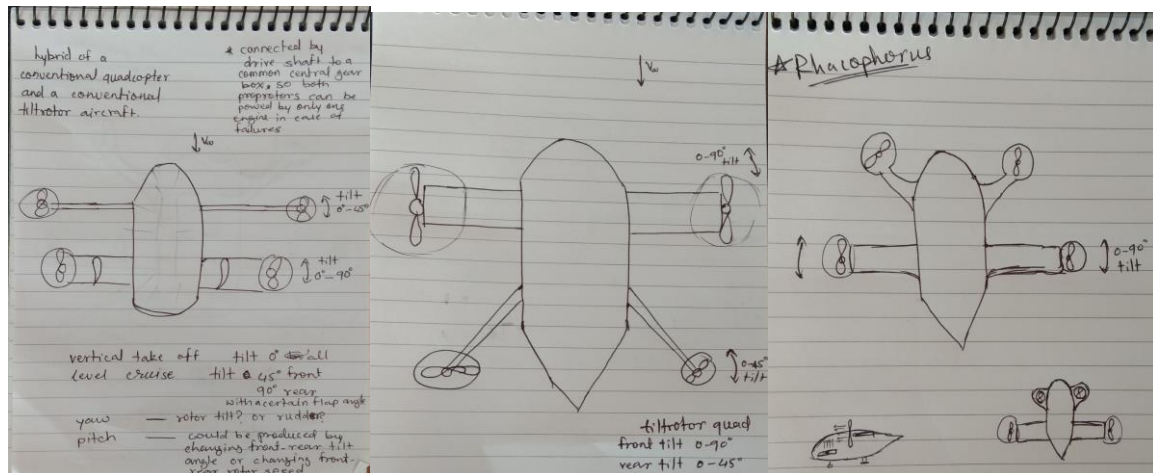 hybrid of a
conventional quadcopter
and a conventional
tiltrotor aircraft.
* connected by
drive shaft to a
common central gear
box, so both
proprotors can be
powed by only one
engine in case of
failures
V∞
tilt
0°-45°
tilt
0°-90°
vertical take off tilt 0° all
level cruise tilt 45° front
90° rear
with a certain flap angle
yaw — rotor tilt? or rudder?
pitch — could be produced by
changing front-rear tilt
angle or changing front-
rear rotor speed
V∞
0-90°
tilt
0-45°
tilt
tiltrotor quad
front tilt 0-90°
rear tilt 0-45°
*Rhacophorus
0-90°
tilt